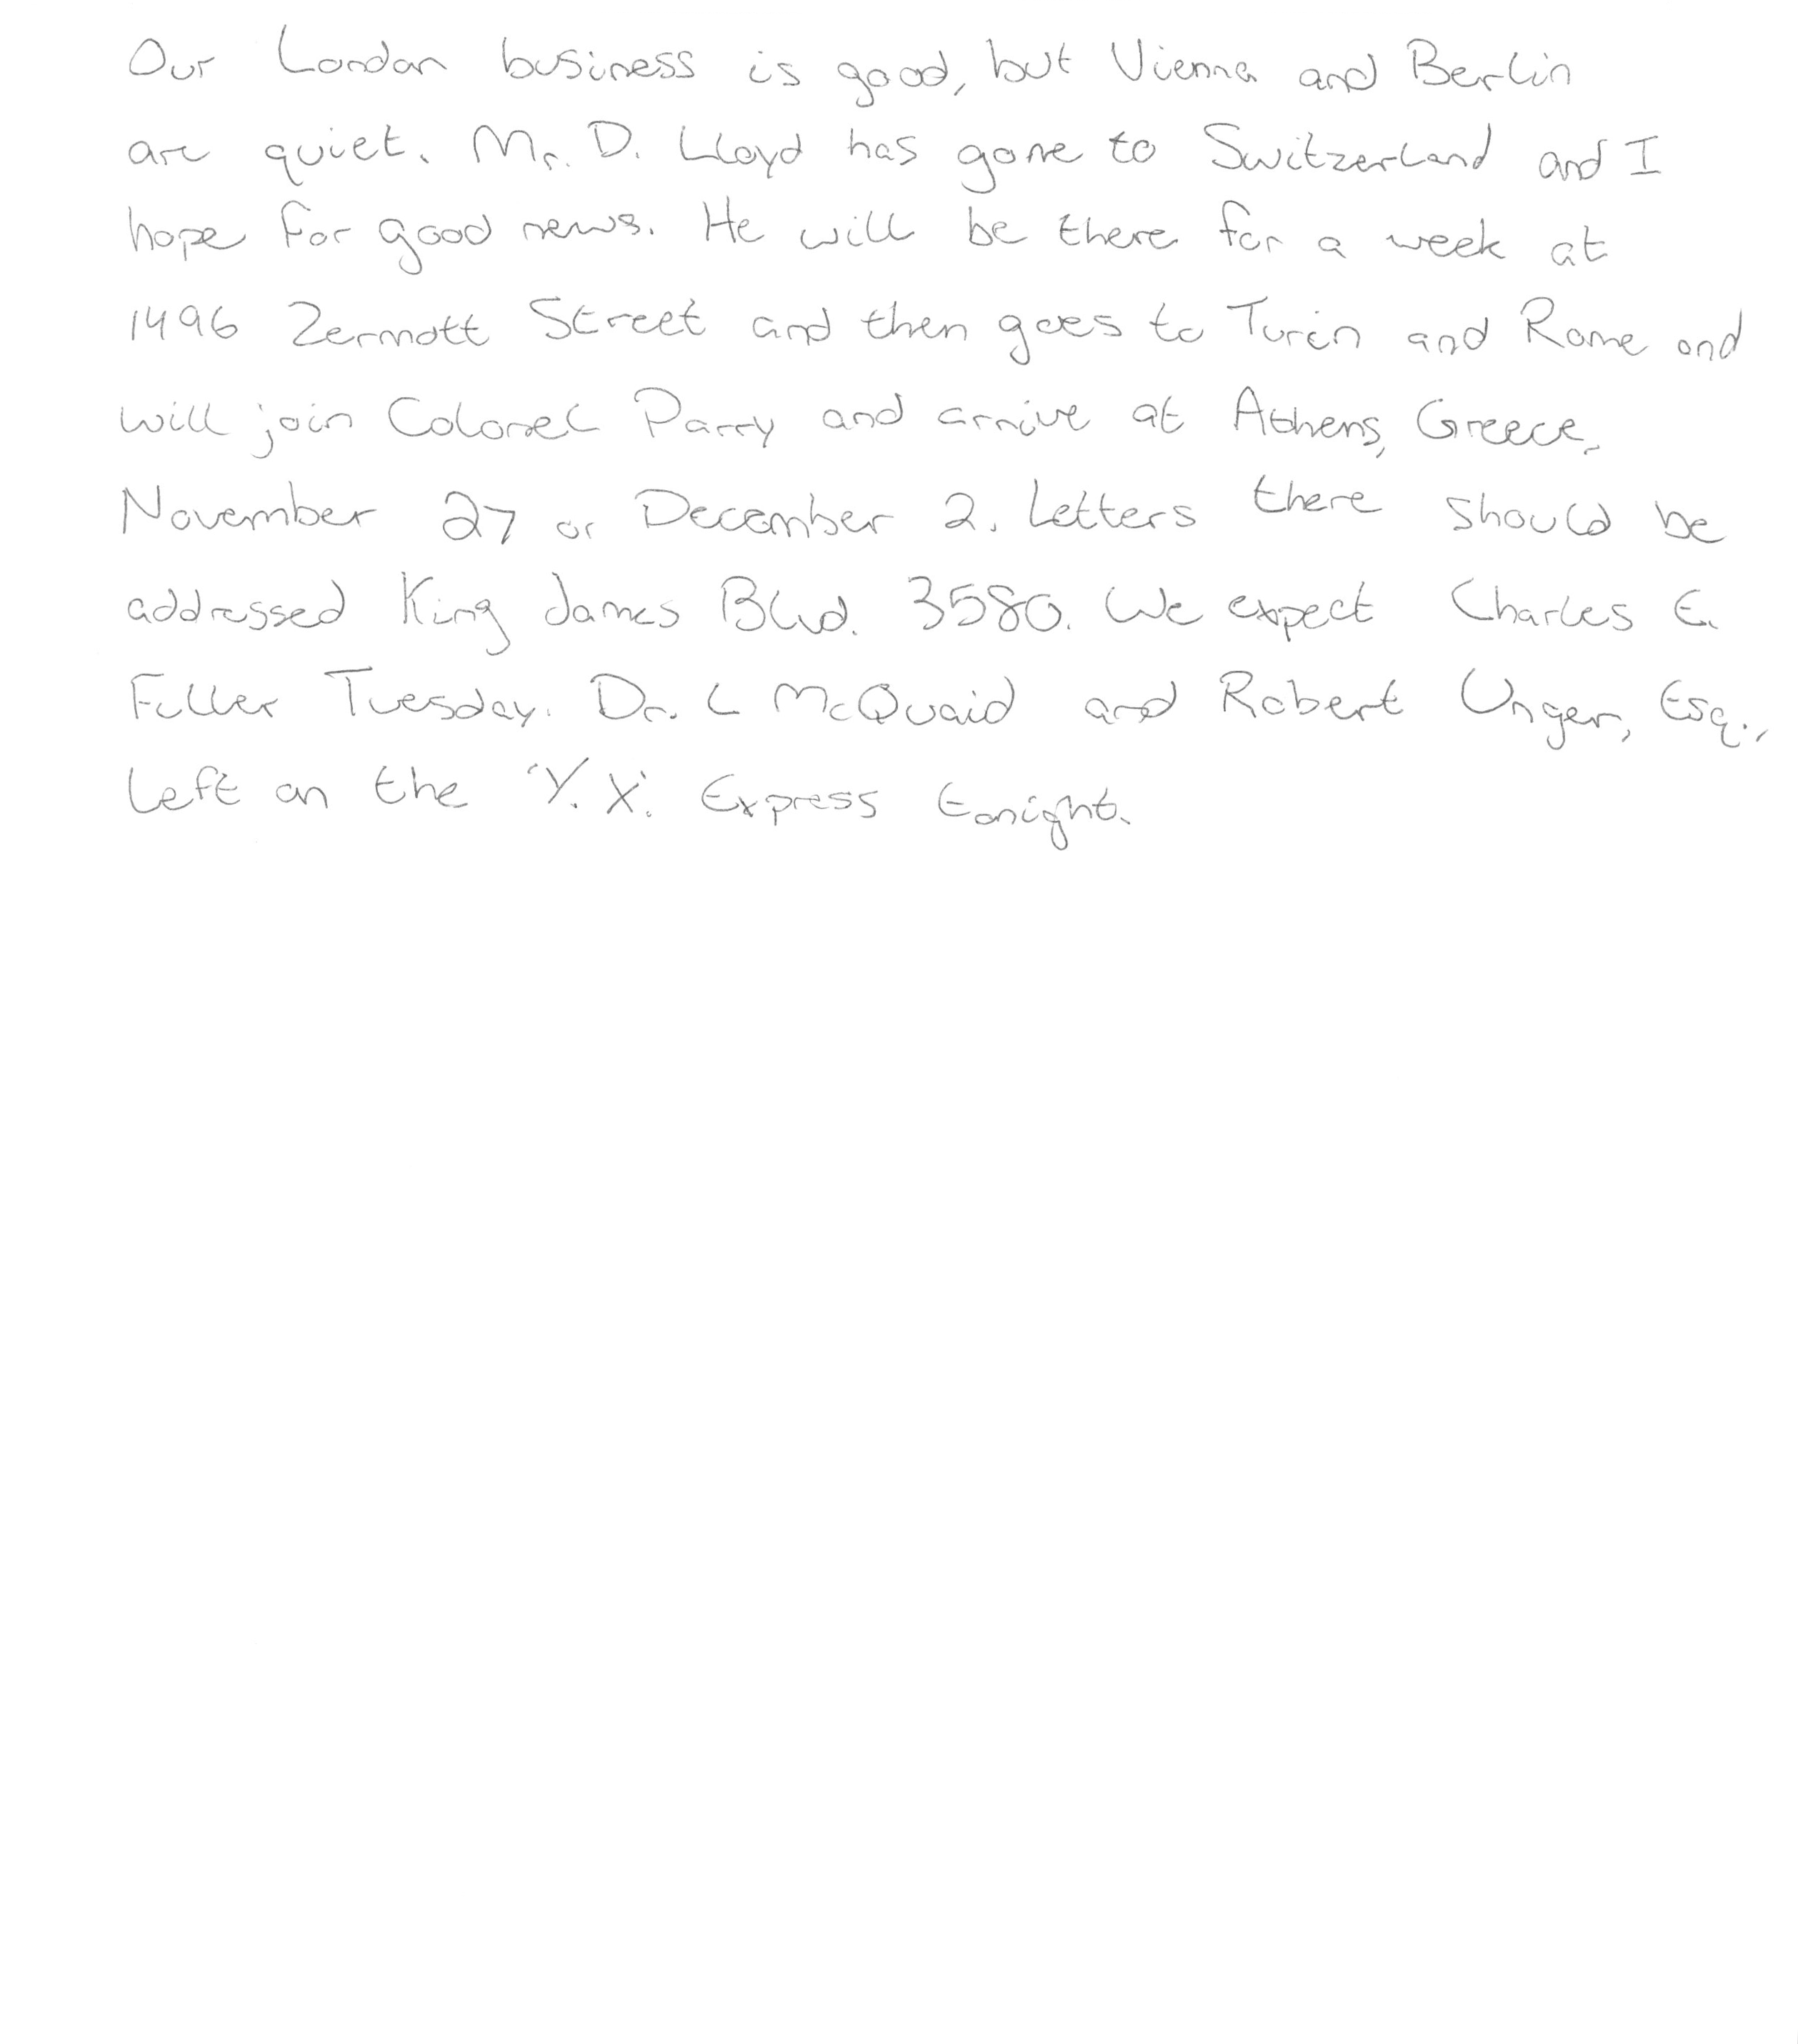 Our London business is good, but Vienna and Berlin
are quiet. Mr. D. Lloyd has gone to Switzerland and I
hope for good news. He will be there for a week at
1496 Zermott Street and then goes to Turin and Rome and
will join Colonel Parry and arrive at Athens, Greece,
November 27 or December 2. Letters there should be
addressed King James Blvd. 3580. We expect Charles E.
Fuller Tuesday. Dr. L McQuaid and Robert Unger, Esq.,
left on the 'Y. X.' Express tonight.